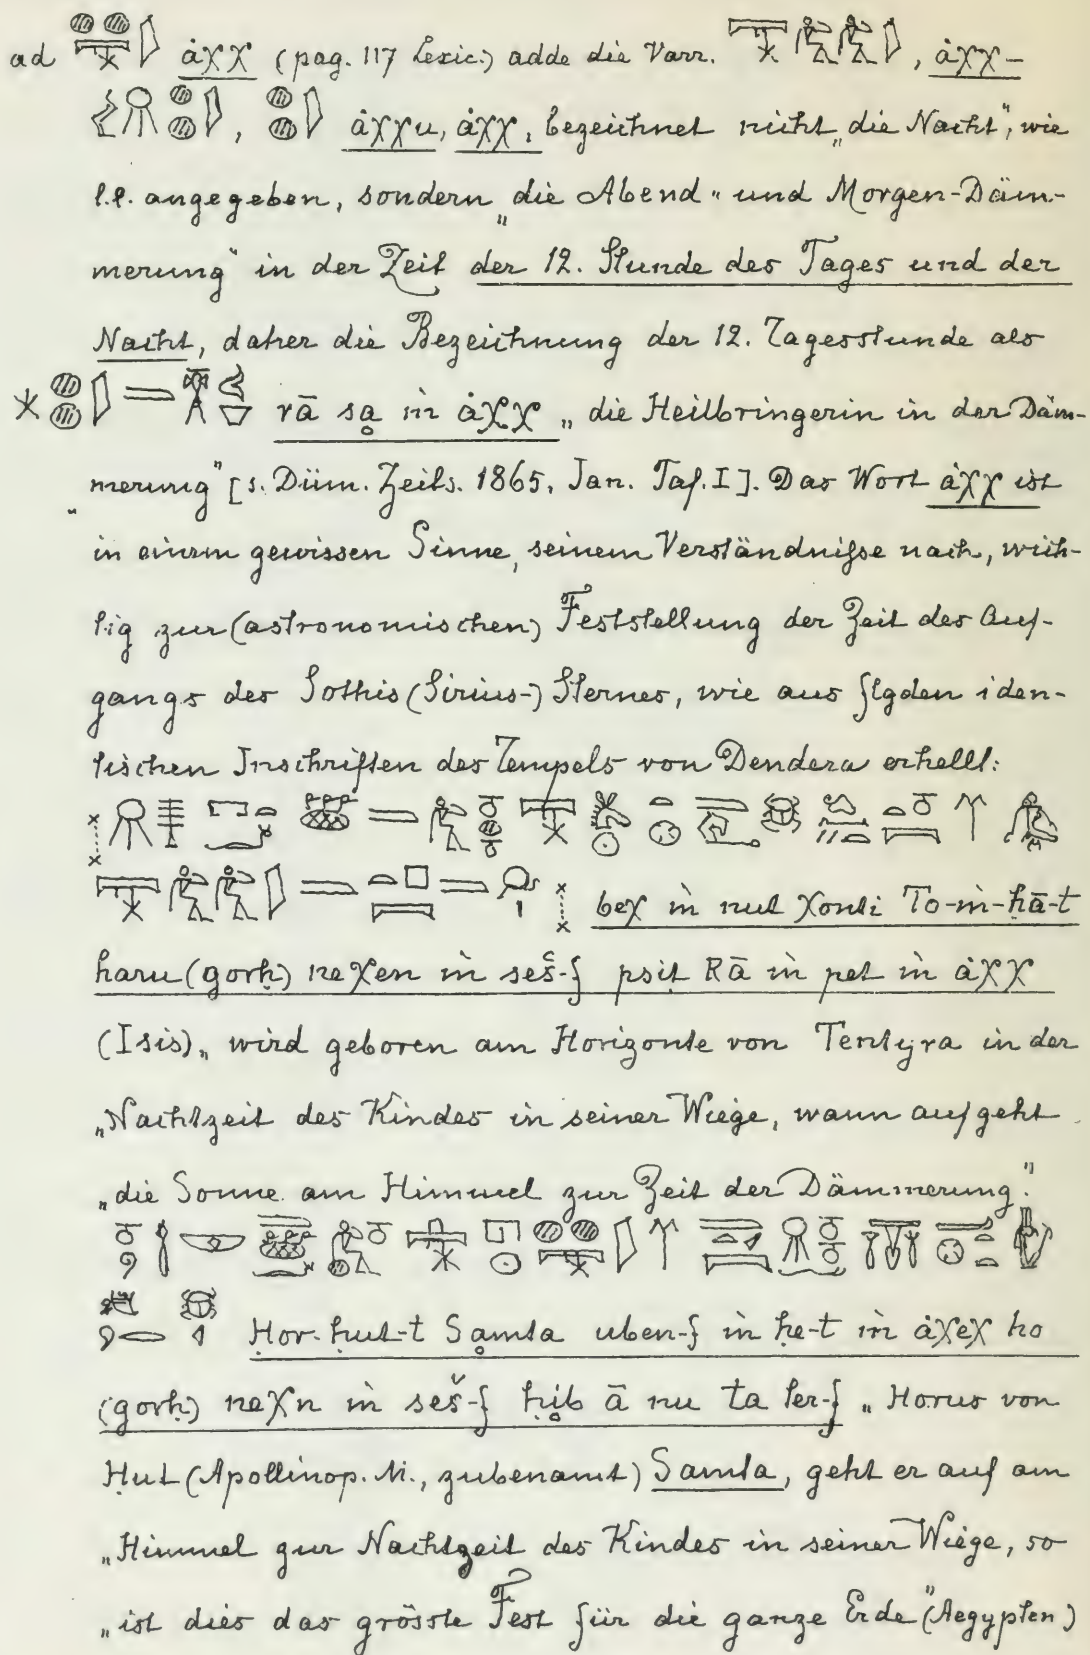 ad ȧχχ (pag. 117 Lexic.) adde die Varr. , ȧχχ-
, ȧχχu, ȧχχ, bezeichnet nicht „die Nacht", wie
l.l. angegeben, sondern „die Abend- und Morgen-Däm-
merung" in der Zeit der 12. Stunde des Tages und der
Nacht, daher die Bezeichnung der 12. Tagesstunde als
rā sạ m ȧχχ „die Heilbringerin in der Däm-
„merung" [s. Düm. Zeits. 1865, Jan. Taf. I]. Das Wort ȧχχ ist
in einem gewissen Sinne, seinem Verständnisse nach, wich-
tig zur (astronomischen) Feststellung der Zeit des Auf-
gangs des Sothis (Sirius-) Sternes, wie aus flgden iden-
tischen Inschriften des Tempels von Dendera erhellt:
beχ m nut χonti To-m-ḥā-t
haru (gorḥ) neχen m seš-f psit Rā m pet m ȧχχ
(Isis) „wird geboren am Horizonte von Tentyra in der
„Nachtzeit des Kindes in seiner Wiege, wann aufgeht
„die Sonne am Himmel zur Zeit der Dämmerung."
Hor-ḥut-t Sạmta uben-f m he-t m ȧχeχ ho
(gorḥ) neχn m seš-f ḥib ā nu ta ter-f „Horus von
Ḥut (Apollinop. M., zubenamt) Samta, geht er auf am
„Himmel zur Nachtzeit des Kindes in seiner Wiege, so
„ist dies das grösste Fest für die ganze Erde" (Aegypten)